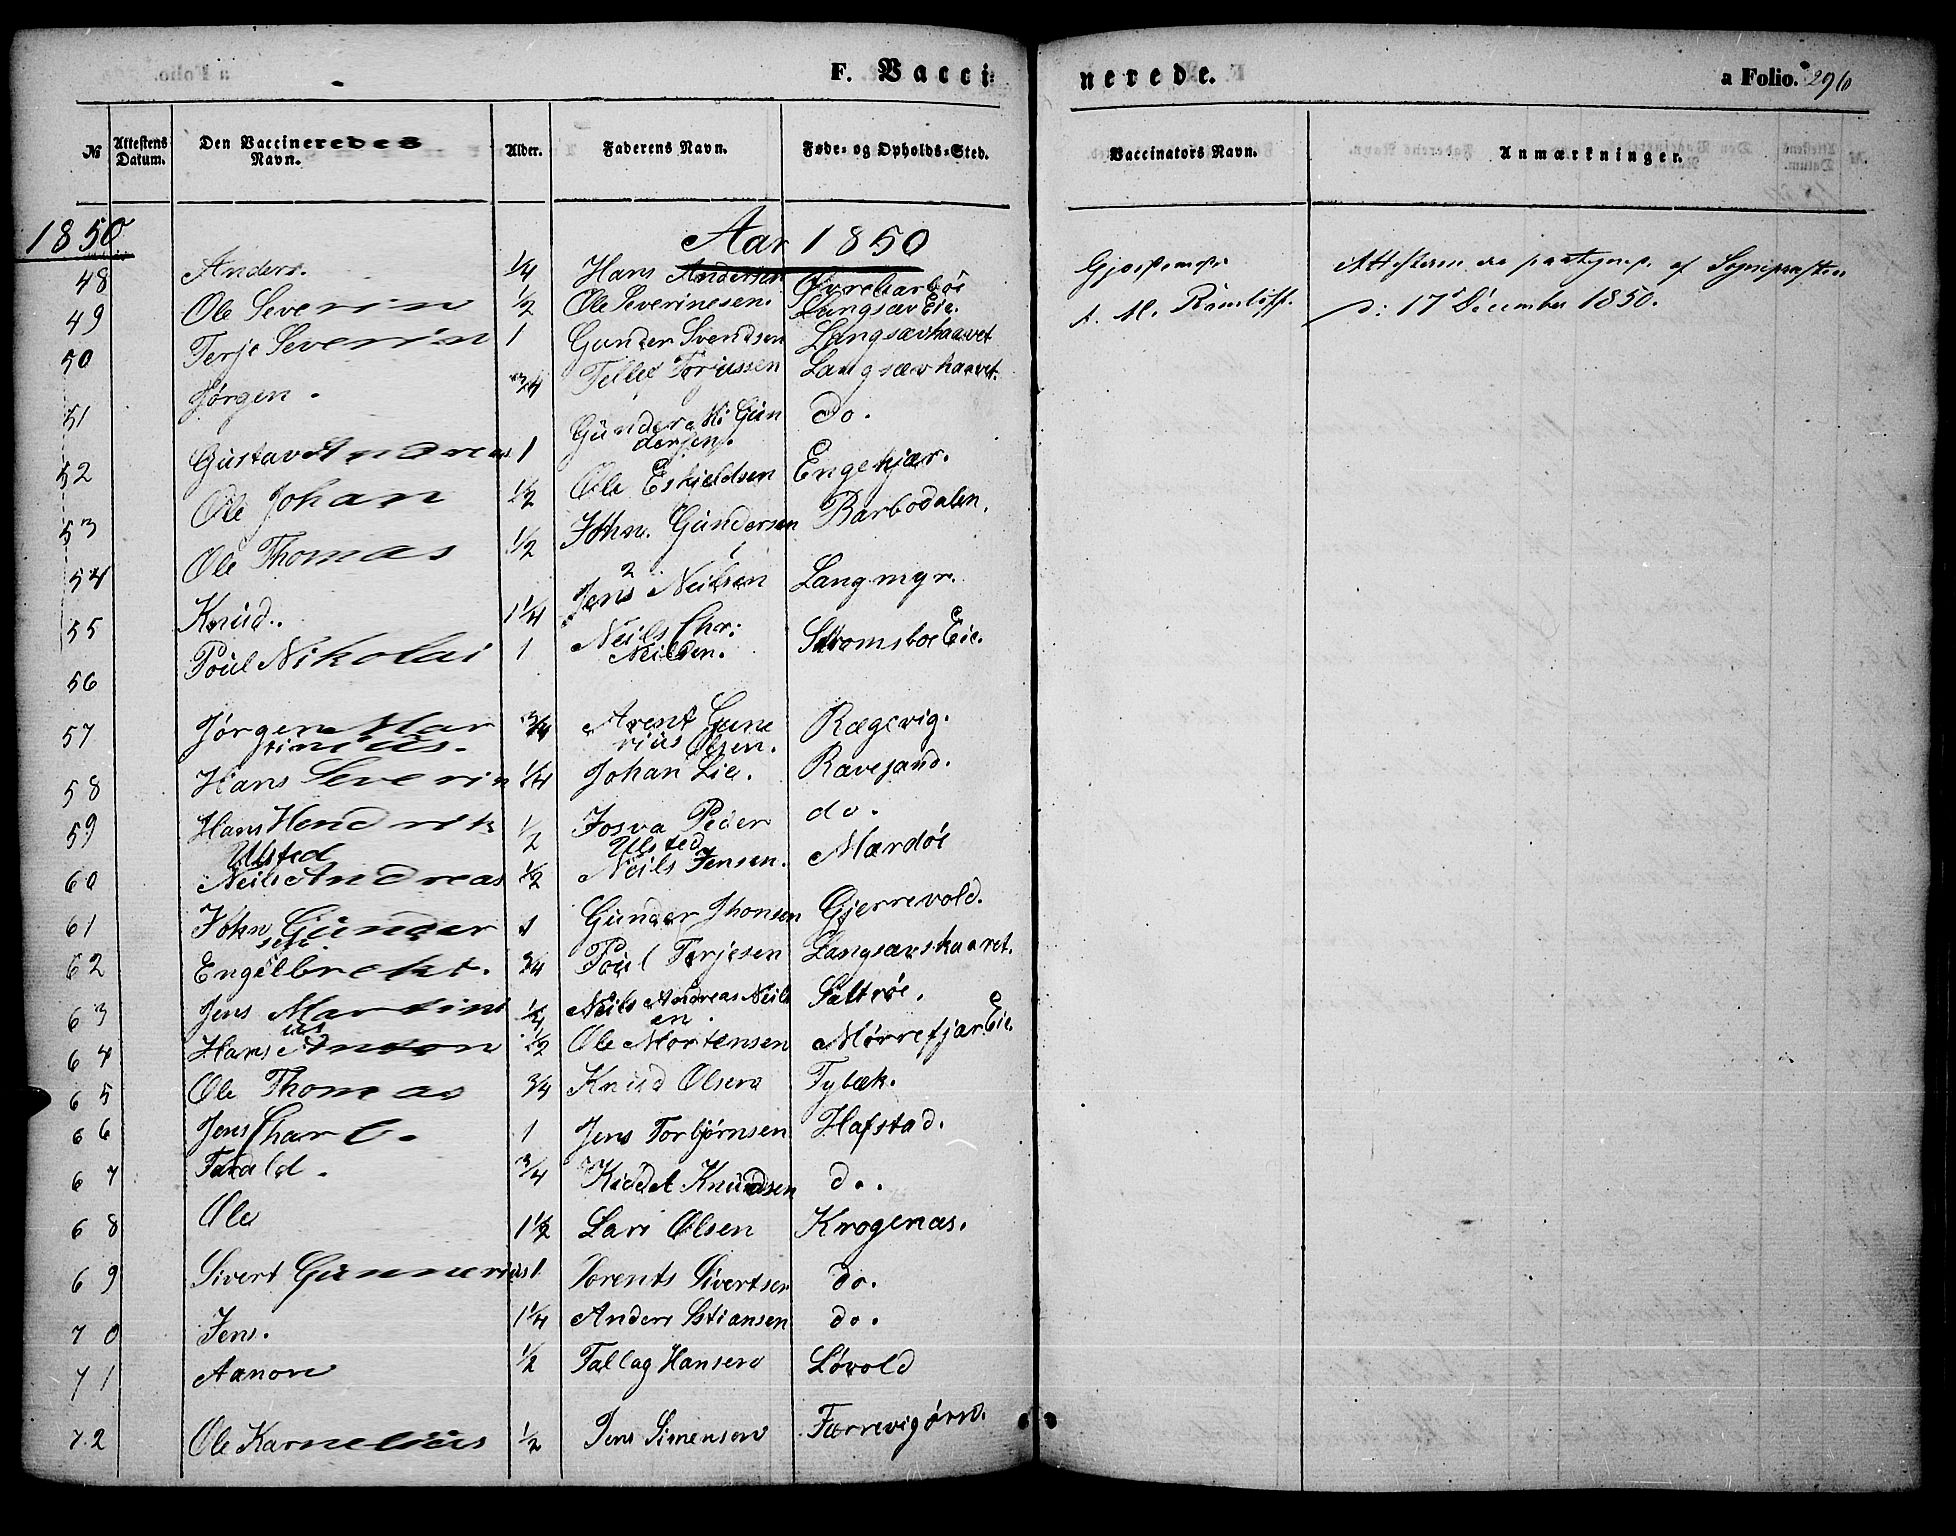 F. Vacci- nerede. a Folio. 296
№ Attestens Datum. Den Vaccineredes Navn. Alder. Faderens Navn. Føde- og Opholds-Sted. Vaccinators Navn. Anmærkninger.
1850 Aar 1850
48 Anders. 1/4 Hans Andersen Øvrebarbøe
49 Ole Severin 1/2 Ole Severinesen. Langsæv Eie. 17 December 1850.
50 Terje Severin 1 Gunder Svendsen Langsævhaavet
51 Jørgen. 3/4 Tellef Torjussen Langsævhaavet.
52 Gustav Andreas 1 Gunder Gundersen. do.
53 Ole Johan 1/2 Ole Eskjeldsen Engekjær.
54 Ole Thomas 1/2 John Gundersen Barbodalen.
55 Knud. 1 1/4 Jens Neilsen Langmyr.
56 Poul Nikolai 1 Neils Chr: Neilsen. Stromsboe Eie.
57 Jørgen Martinius. 3/4 Arent Gunerius Olsen. Rægevig.
58 Hans Severin 1/4 Johan Lie. Ravesand.
59 Hans Hendrik Ulsted 1/2 Josva Peder Ulsted do.
60 Neils Andreas 1/2 Neils Jensen. Mærdøe
61 John Gundersen. 1 Gunder Jhonsen Gjerrevold.
62 Engelbrekt. 3/4 Poul Terjesen Langsævskaaret.
63 Jens Martinius 1/4 Neils Andreas Neilsen. Saltrøe.
64 Hans Anton 1/2 Ole Mortensen Mørrefjær Eie.
65 Ole Thomas 3/4 Knud Olsen Tylæk.
66 Jens Charl. 1 Jens Torbjørnsen Hafstad.
67 Tarald. 3/4 Kiddel Knudsen do.
68 Ole 1 1/2 Lars Olsen Krogenas.
69 Sivert Gunnerius 1 Sorents Sivertsen do.
70 Jens. 1 1/4 Anders Stiansen do.
71 Aanon 1/2 Tallag Hansen Løvold
72 Ole Karnelius 1/2 Jens Simensen Færrevigørn.